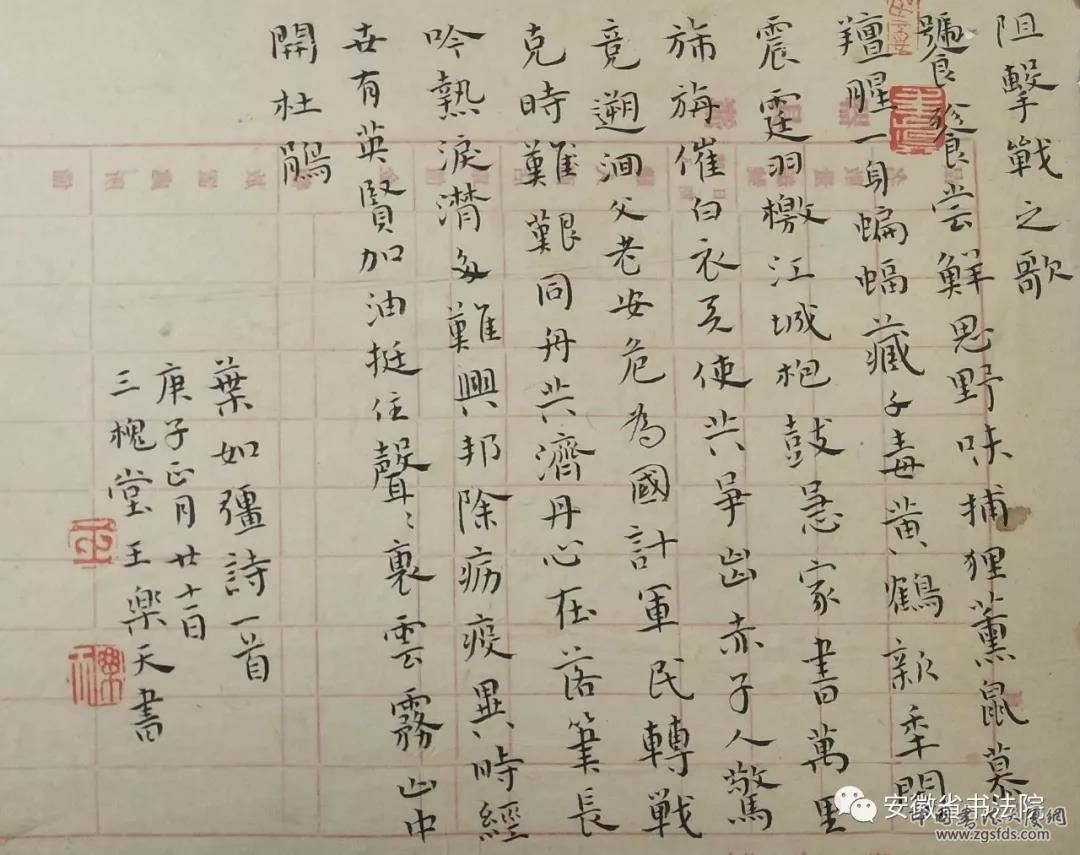 阻擊戰之歌
饕餮尝鮮思野味捕狸薰鼠慕
羶腥一身蝙蝠藏子毒黄鶴新年聞
震霆羽檄江城枹鼓急家書萬里
旆旃催白衣天使共爭出赤子人驚
竟遡洄父老安危為國計軍民轉戰
克時難艱同舟共濟丹心在落筆長
吟熱淚潸多難興邦除疠疫異時經
世有英賢加油挺住聲〻裏雲霧山中
開杜鵑
葉如彊詩一首
庚子正月廿六日
三槐堂王樂天書
安徽省书法院
www.zgsfds.com